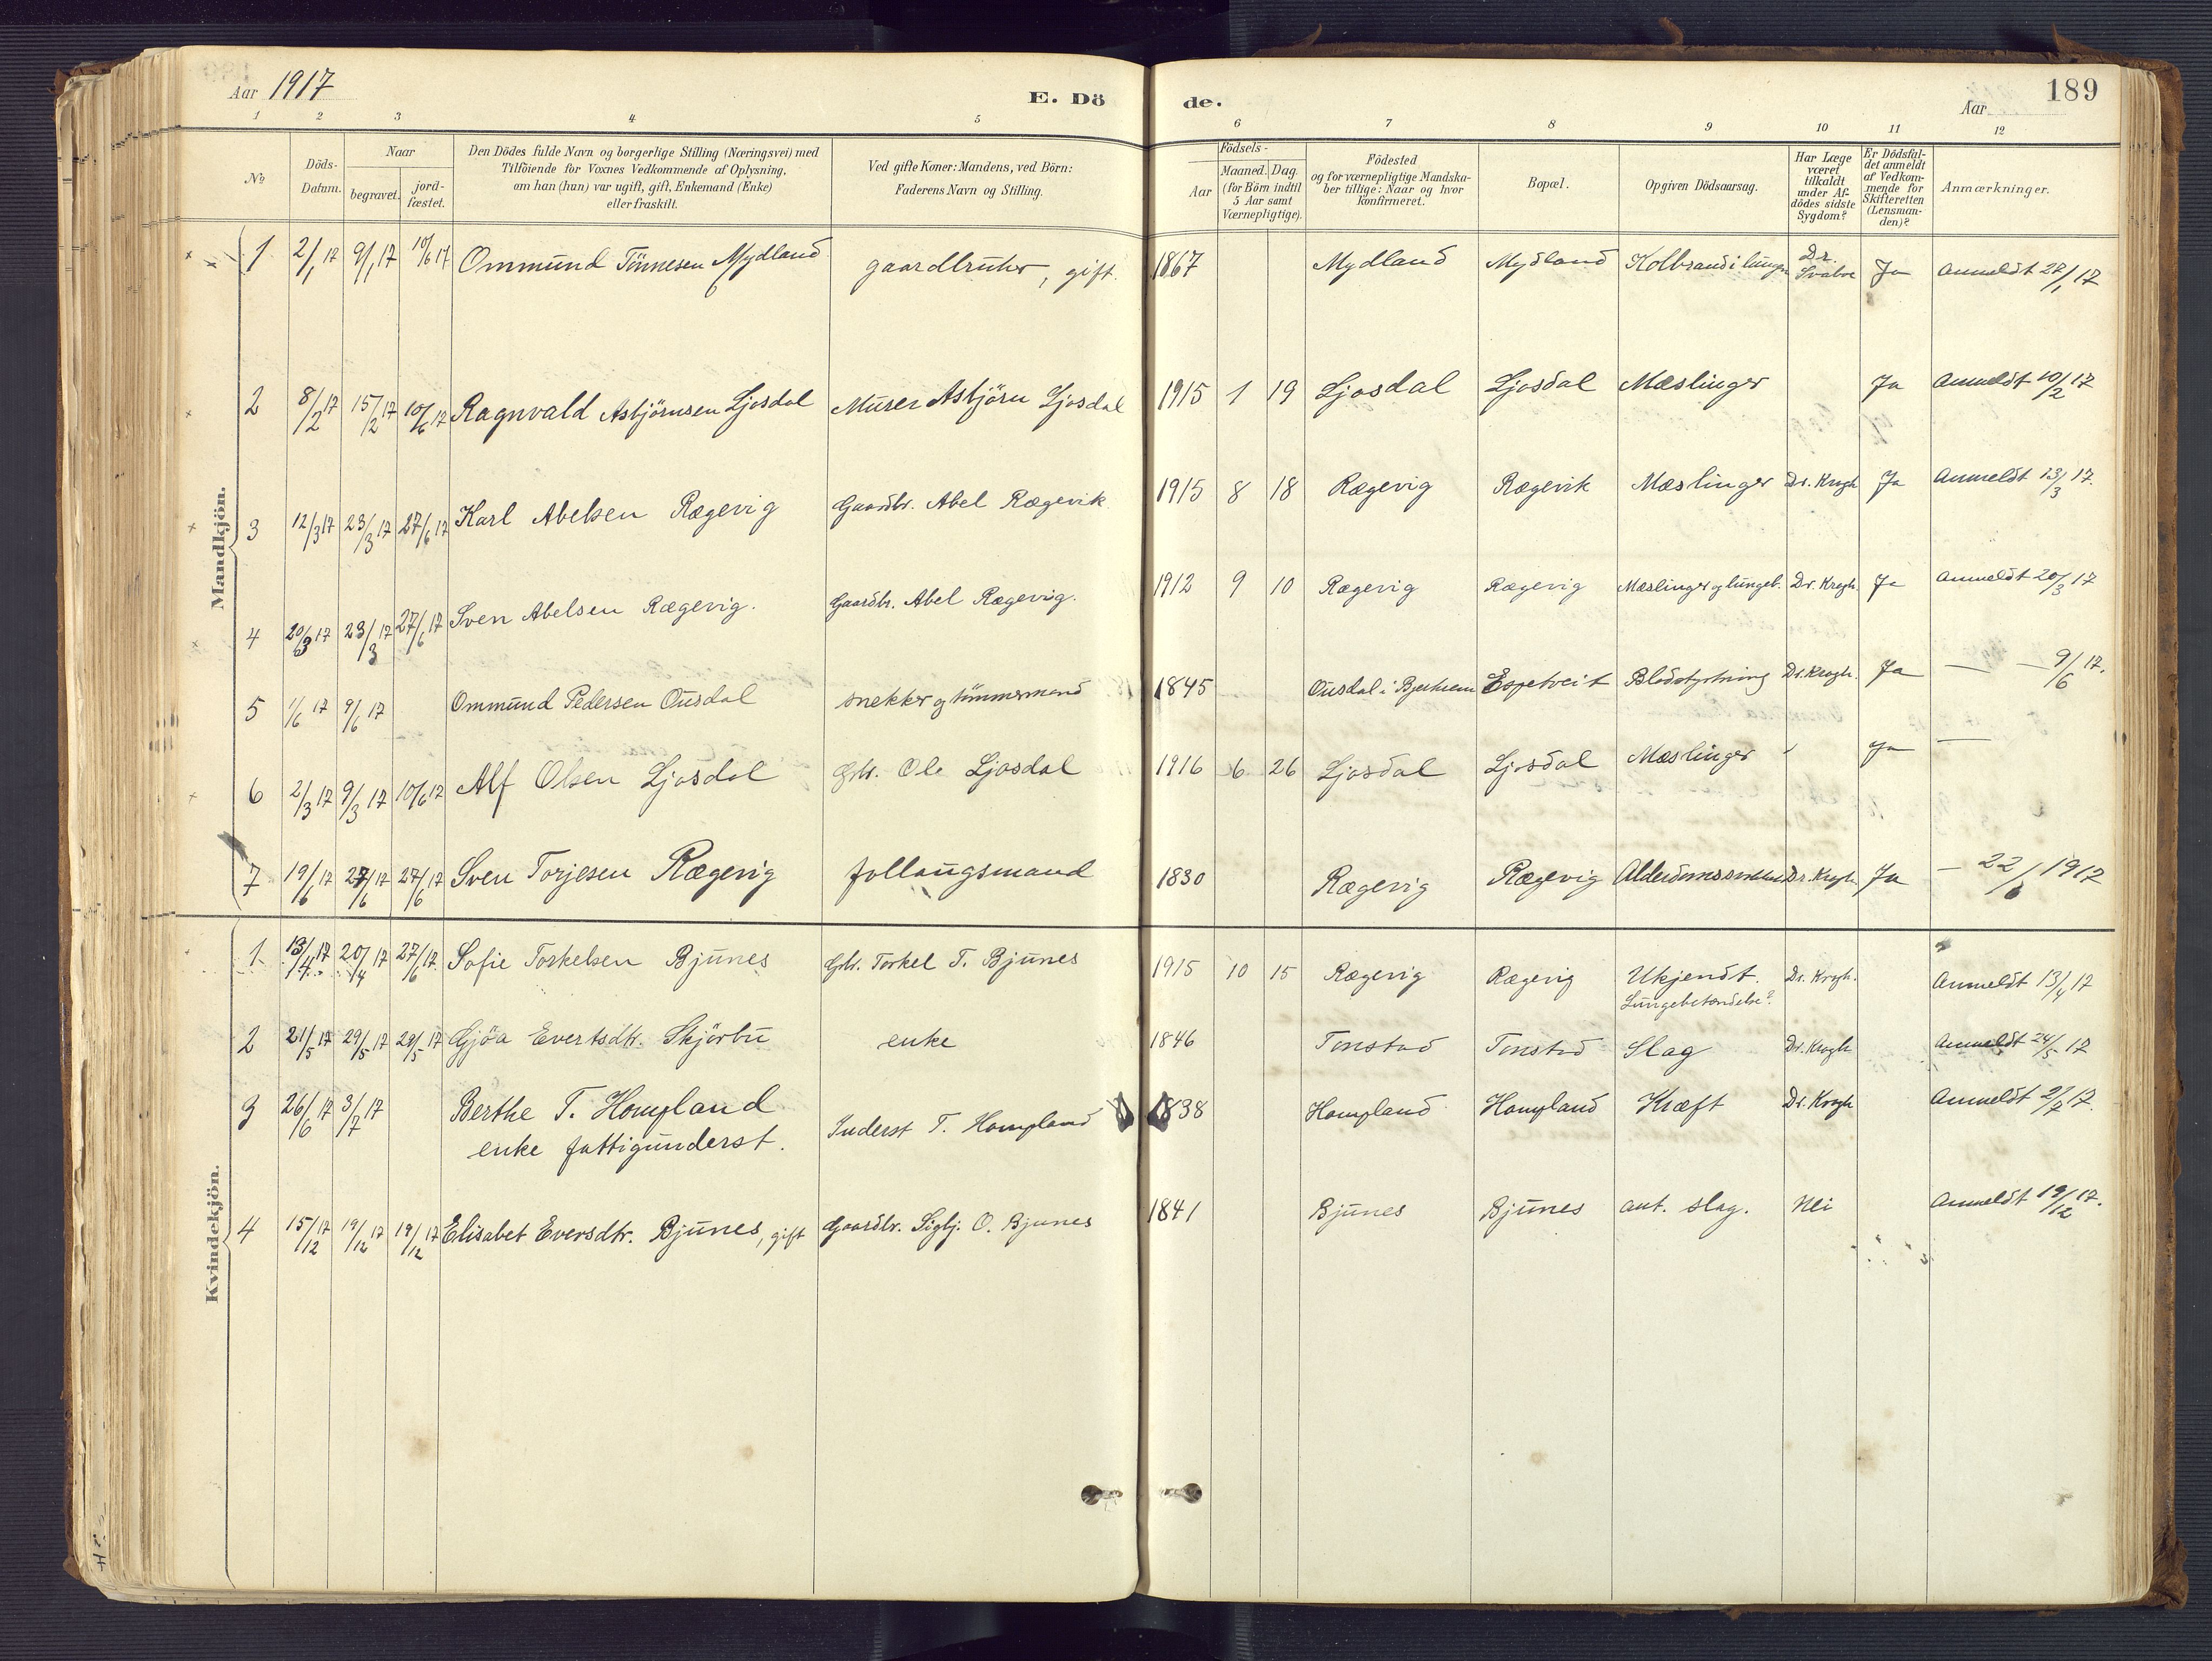 Aar 1917
E. Dö
de.
Aar
189
1 2 3 4 5 6 7 8 9 10 11 12
No
Döds-Datum.
Naar
begravet.
jord-fæstet.
Den Dödes fulde Navn og borgerlige Stilling (Næringsvei) med
Tilföiende for Voxnes Vedkommende af Oplysning,
om han (hun) var ugift, gift, Enkemand (Enke)
eller fraskilt.
Ved gifte Koner: Mandens, ved Börn:
Faderens Navn og Stilling.
Födsels-
Aar
Maaned. Dag.
(for Börn indtil
5 Aar samt
Værnepligtige).
Födested
og for værnepligtige Mandska-
ber tillige: Naar og hvor
konfirmeret.
Bopæl.
Opgiven Dödsaarsag.
Har Læge
været
tilkaldt
under Af-
dödes sidste
Sygdom?
Er Dödsfal-
det anmeldt
af Vedkom-
mende for
Skifteretten
(Lensman-
den)?
Anmærkninger.
Mandkjön.
1 2/1 17 9/1 17 10/6 17 Ommund Tönnesen Mydland gaardbruker, gift. 1867 Mydland Mydland Kolbrand i lungn Dr. Ja Anmeldt 27/1 17
2 8/2 17 15/2 17 10/6 17 Ragnvald Asbjörnsen Ljosdal Murer Asbjörn Ljosdal 1915 1 19 Ljosdal Ljosdal Mæslinger Ja Anmeldt 10/2 17
3 12/3 17 23/3 17 27/6 17 Karl Abelsen Rægevig Gaardbr. Abel Rægevik 1915 8 18 Rægevig Rægevik Mæslinger Dr. Krogh Ja Anmeldt 13/3 17.
4 20/3 17 23/3 17 27/6 17 Sven Abelsen Rægevig. Gaardbr. Abel Rægevig. 1912 9 10 Rægevig Rægevig Mæslinger og lungeb. Dr. Krogh. Ja Anmeldt 20/3 17
5 1/6 17 9/6 17 Ommund Pedersen Ousdal snekker og tömmermand 1845 Ousdal i Bjerkreim Espetveit Blodstyrtning Dr. Krogh. Ja — — 9/6 17.
6 2/3 17 9/3 17 10/6 17 Alf Olsen Ljosdal Gbr. Ole Ljosdal 1916 6 26 Ljosdal Ljosdal Mæslinger Ja —
7 19/6 17 27/6 17 27/6 17 Sven Torjesen Rægevig follaugsmand 1830 Rægevig Rægevig Dr. Krogh Ja — 22/6 1917
Kvindekjön.
1 13/4 17 20/4 17 27/6 17 Sofie Torkelsen Bjunes Gbr. Torkel T. Bjunes 1915 10 15 Rægevig Rægevig Ukjendt. Dr. Krogh. Anmeldt 13/4 17
Lungebetændelse?
2 21/5 17 29/5 17 29/5 17 Gjöa Evertsdtr. Skjörbu enke 1846 Tonstad Tonstad Slag Dr. Krogh Anmeldt 24/5 17
3 26/6 17 3/7 17 Berthe T. Hompland Inderst T. Hompland 1838 Hompland Hompland Kræft Dr. Krogh Anmeldt 2/7 17.
enke fattigunderst.
4 15/12 17 19/12 17 19/12 17 Elisabet Eversdtr. Bjunes, gift Gaardbr. Sigbj. O. Bjunes 1841 Bjunes Bjunes ant. slag. Nei Anmeldt 19/12 17.